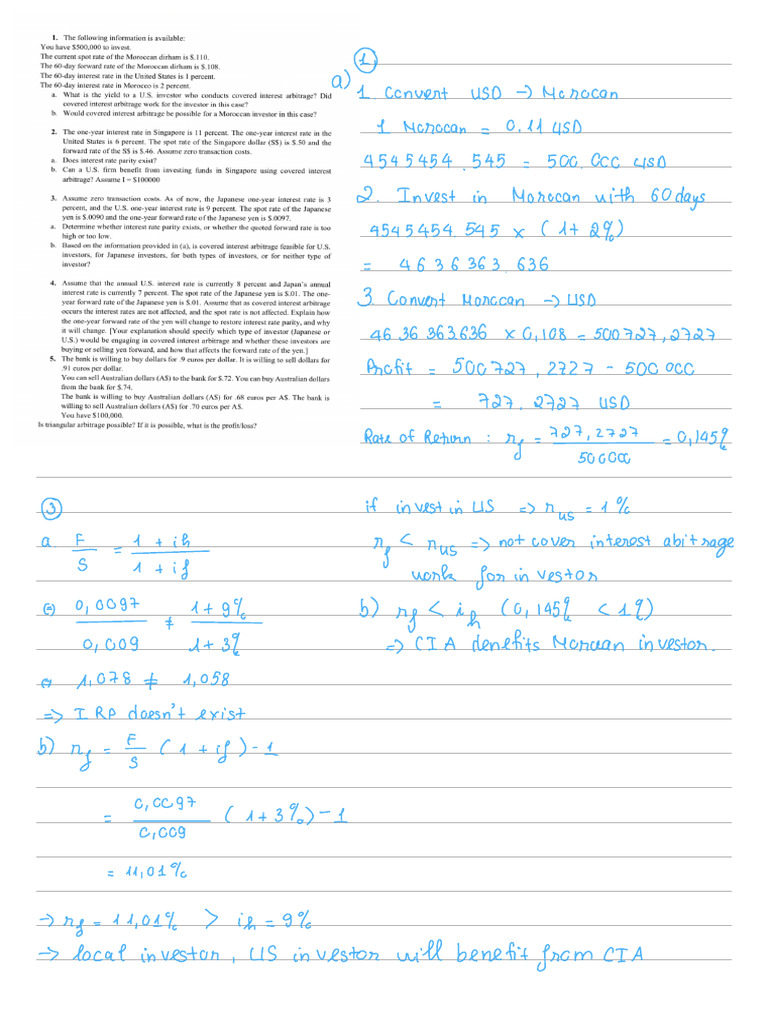 1. The following information is available:
You have $500,000 to invest.
The current spot rate of the Moroccan dirham is $.110.
The 60-day forward rate of the Moroccan dirham is $.108.
The 60-day interest rate in the United States is 1 percent.
The 60-day interest rate in Morocco is 2 percent.
a. What is the yield to a U.S. investor who conducts covered interest arbitrage? Did
covered interest arbitrage work for the investor in this case?
b. Would covered interest arbitrage be possible for a Moroccan investor in this case?
2. The one-year interest rate in Singapore is 11 percent. The one-year interest rate in the
United States is 6 percent. The spot rate of the Singapore dollar (S$) is $.50 and the
forward rate of the S$ is $.46. Assume zero transaction costs.
a. Does interest rate parity exist?
b. Can a U.S. firm benefit from investing funds in Singapore using covered interest
arbitrage? Assume I = $100000
3. Assume zero transaction costs. As of now, the Japanese one-year interest rate is 3
percent, and the U.S. one-year interest rate is 9 percent. The spot rate of the Japanese
yen is $.0090 and the one-year forward rate of the Japanese yen is $.0097.
a. Determine whether interest rate parity exists, or whether the quoted forward rate is too
high or too low.
b. Based on the information provided in (a), is covered interest arbitrage feasible for U.S.
investors, for Japanese investors, for both types of investors, or for neither type of
investor?
4. Assume that the annual U.S. interest rate is currently 8 percent and Japan's annual
interest rate is currently 7 percent. The spot rate of the Japanese yen is $.01. The one-
year forward rate of the Japanese yen is $.01. Assume that as covered interest arbitrage
occurs the interest rates are not affected, and the spot rate is not affected. Explain how
the one-year forward rate of the yen will change to restore interest rate parity, and why
it will change. [Your explanation should specify which type of investor (Japanese or
U.S.) would be engaging in covered interest arbitrage and whether these investors are
buying or selling yen forward, and how that affects the forward rate of the yen.]
5. The bank is willing to buy dollars for .9 euros per dollar. It is willing to sell dollars for
.91 euros per dollar.
You can sell Australian dollars (A$) to the bank for $.72. You can buy Australian dollars
from the bank for $.74.
The bank is willing to buy Australian dollars (A$) for .68 euros per A$. The bank is
willing to sell Australian dollars (A$) for .70 euros per A$.
You have $100,000.
Is triangular arbitrage possible? If it is possible, what is the profit/loss?
1
a)
1 Convert USD → Morocan
1 Morocan = 0,11 USD
4545454.545 = 500.000 USD
2. Invest in Morocan with 60 days
4545454.545 × (1 + 2%)
= 4636363.636
3. Convert Moroccan → USD
4636363.636 × 0,108 = 500727,2727
Profit = 500727,2727 - 500000
= 727,2727 USD
Rate of Return : rf = 727,2727 / 500000 = 0,145%
if invest in US => rUS = 1%
rf < rUS => not cover interest abitrage
work for investor
b) rf < ih (0,145% < 1%)
=> CIA denefits Morocan investor.
3
a F / S = 1 + ih / 1 + if
(=) 0,0097 / 0,009 ≠ 1 + 9% / 1 + 3%
⇔ 1,078 ≠ 1,058
=> IRP doesn't exist
b) rf = F / S (1 + if) - 1
= 0,0097 / 0,009 (1 + 3%) - 1
= 11,01%
→ rf = 11,01% > ih = 9%
→ local investor, US investor will benefit from CIA